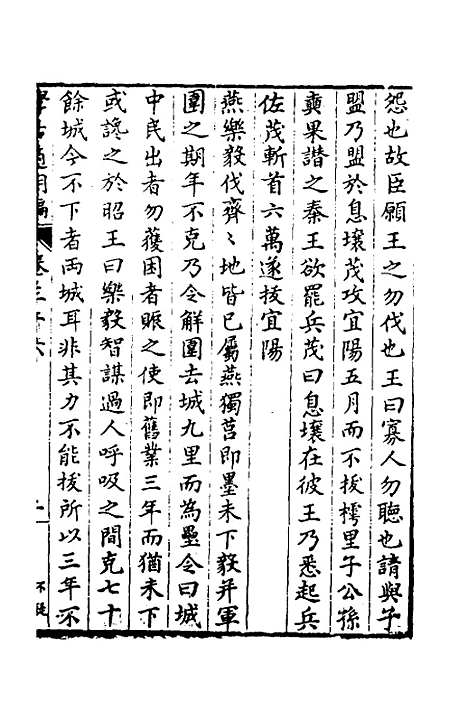 怨也故臣願王之勿伐也王曰寡人勿聴也請與子
盟乃盟於息壤茂攻宜陽五月而不拔樗里子公孫
奭果譖之秦王欲罷兵茂曰息壤在彼王乃悉起兵
佐茂斬首六萬遂拔宜陽
燕樂毅伐齊〻地皆已屬燕獨莒即墨未下毅并軍
圍之期年不克乃令解圍去城九里而為壘令曰城
中民出者勿獲困者賑之使即舊業三年而猶未下
或讒之於昭王曰樂毅智謀過人呼吸之間克七十
餘城今不下者兩城耳非其力不能拔所以三年不
學古適用編
卷三十六